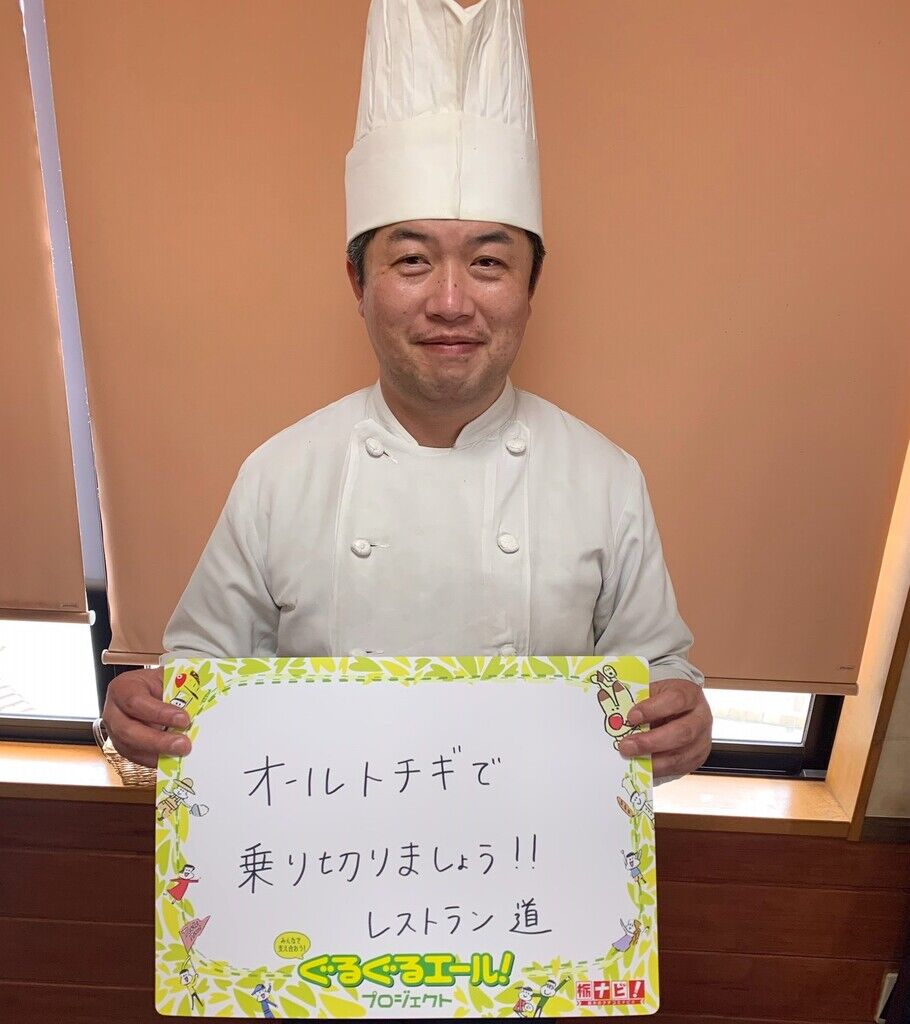 オールトチギで
乗り切りましょう!!
レストラン 道
みんなで
支え合おう!
ぐるぐるエール!
プロジェクト
栃ナビ!